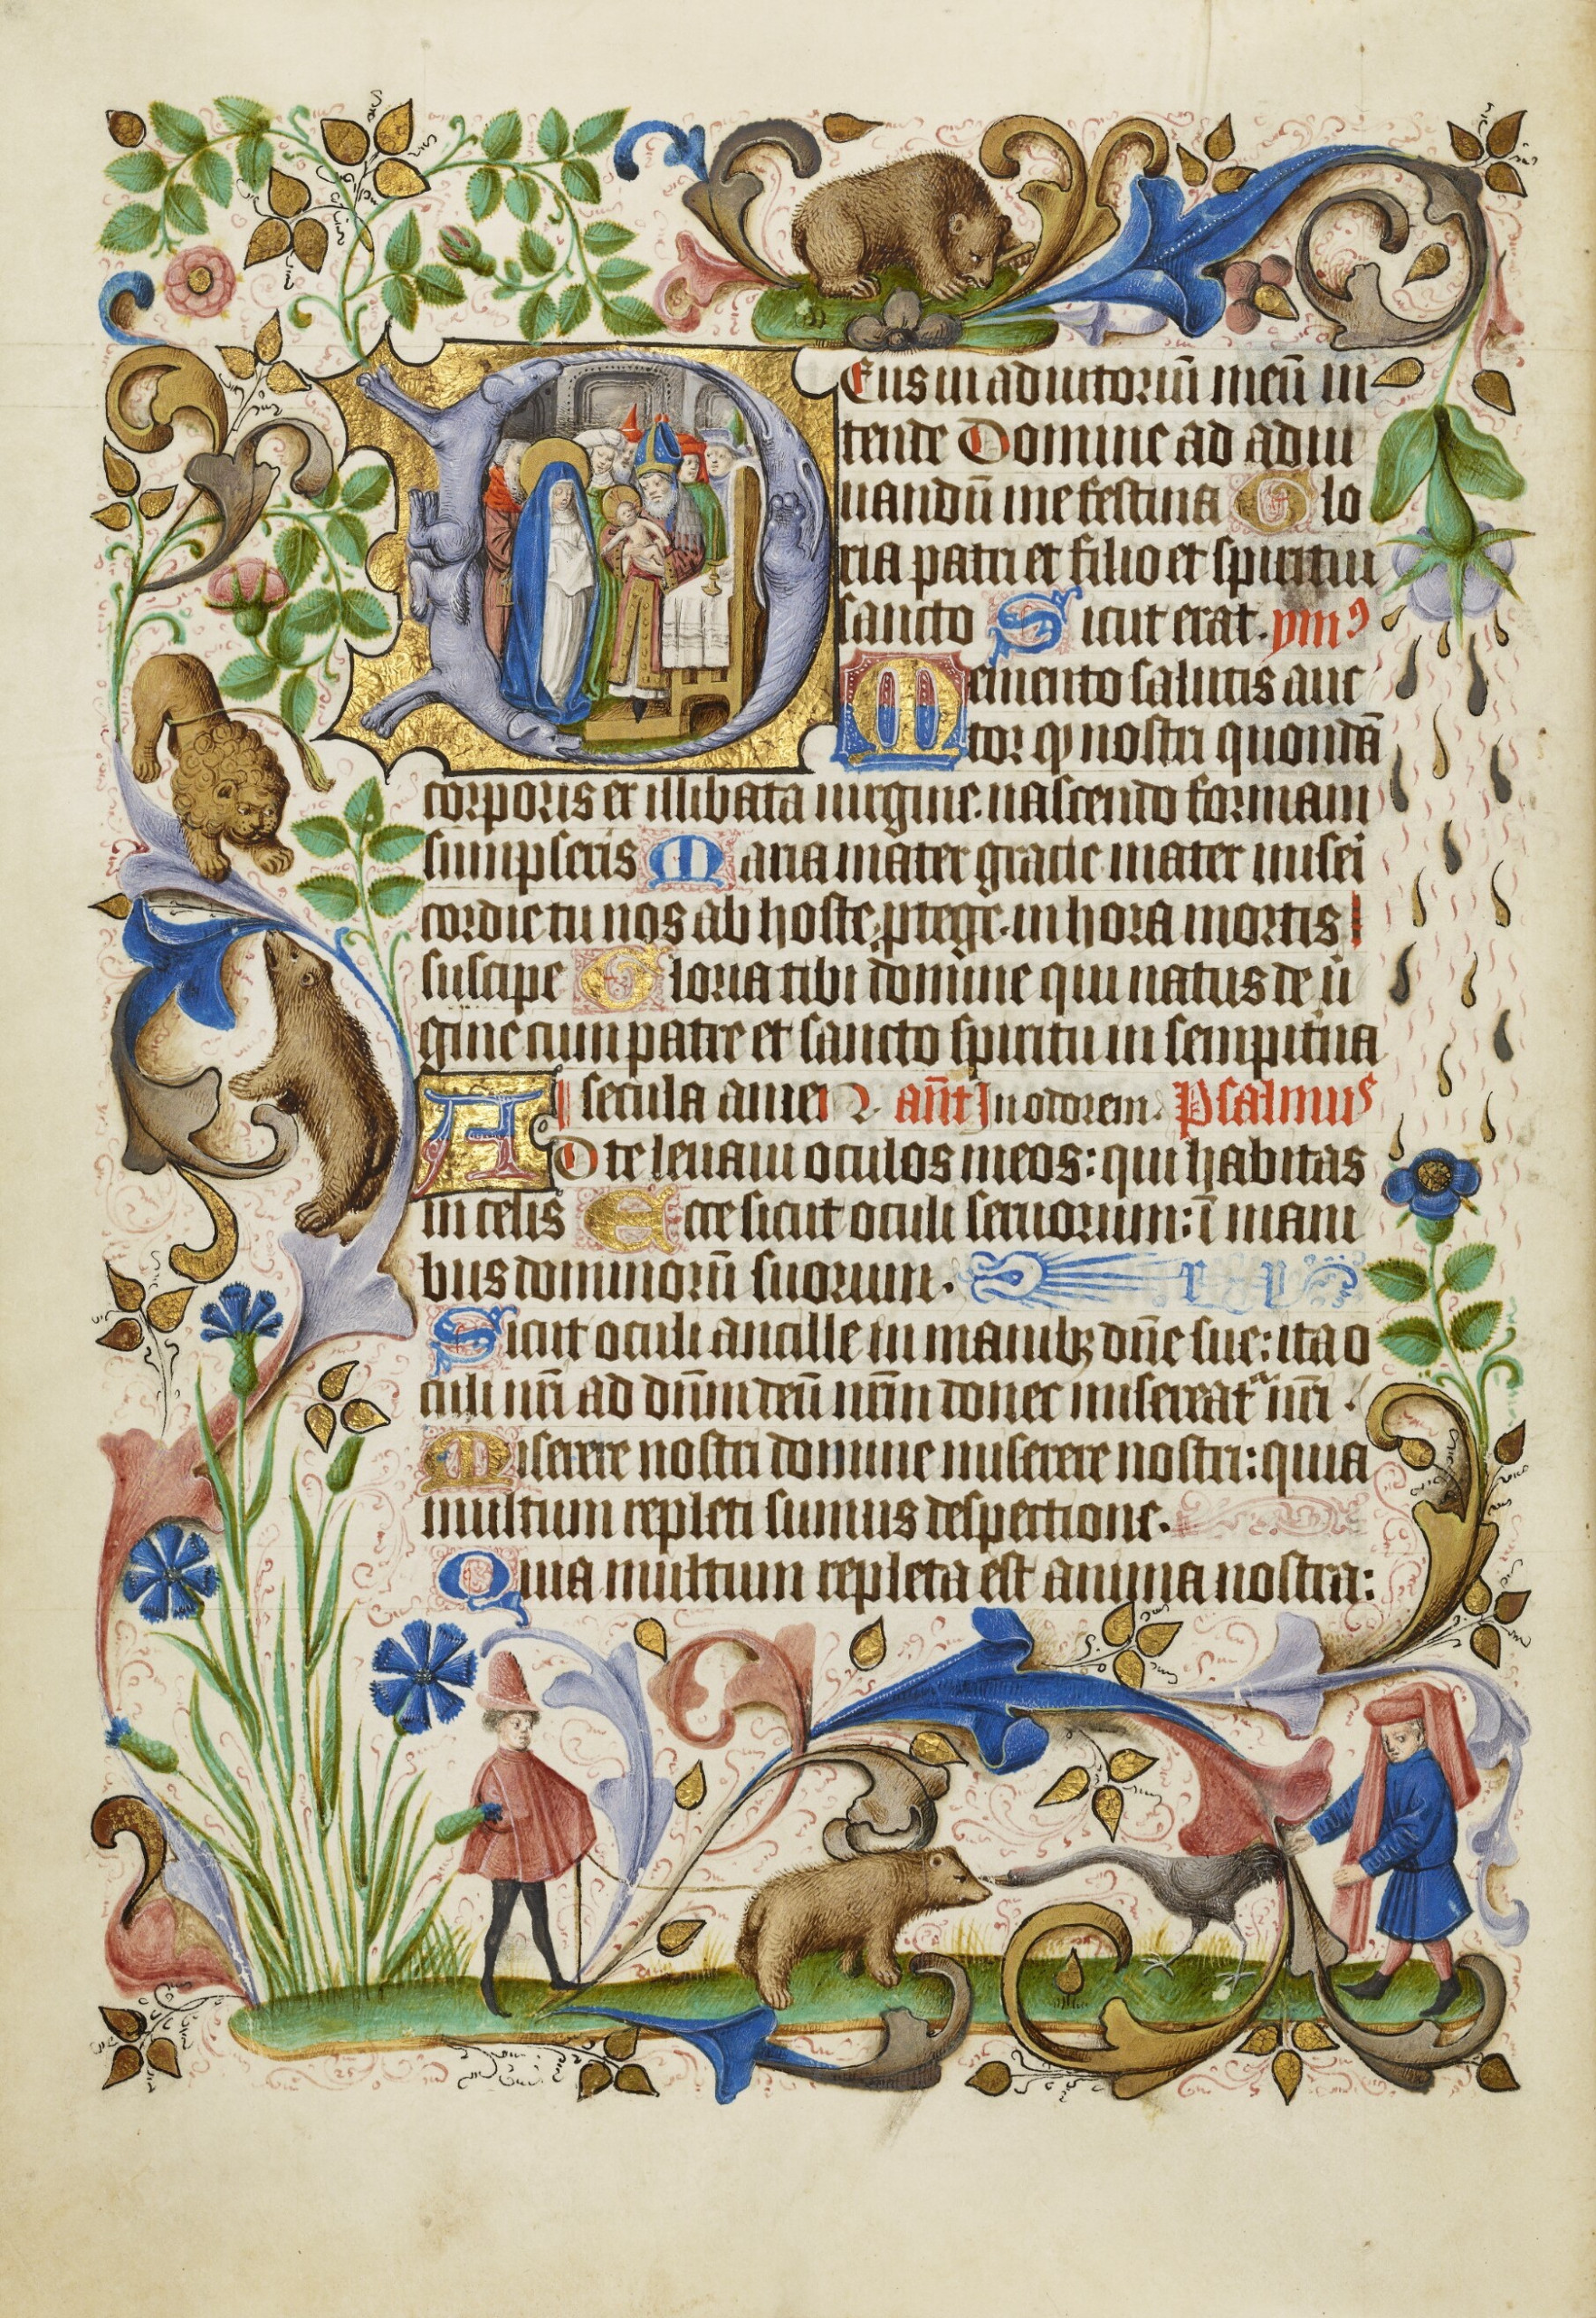 Eus in adiutoriū meū in
tende Domine ad adiu
uandū me festina Glo
ria patri et filio et spiritui
sancto Sicut erat. ymꝰ
Memento salutis auc
tor qͥ nostri quondā
corporis ex illibata uirgine. nascendo formam
sumpseris Maria mater gracie mater miseͥ
cordie tu nos ab hoste ꝓtege. in hora mortis
suscipe Gloria tibi domine qui natus de uͥ
gine cum patre et sancto spiritu in sempit̾na
secula amen. añt In odorem. Psalmus
AD te leuaui oculos meos: qui habitas
in celis Ecce sicut oculi seruorum: ī mani
bus dominorū suorum.
Sicut oculi ancille in manibꝫ dñe sue: ita o
culi nr̄i ad dn̄m deū nr̄m donec misereatᷣ nr̄i.
Miserere nostri domine miserere nostri: quia
multum repleti sumus despectione.
Quia multum repleta est anima nostra: